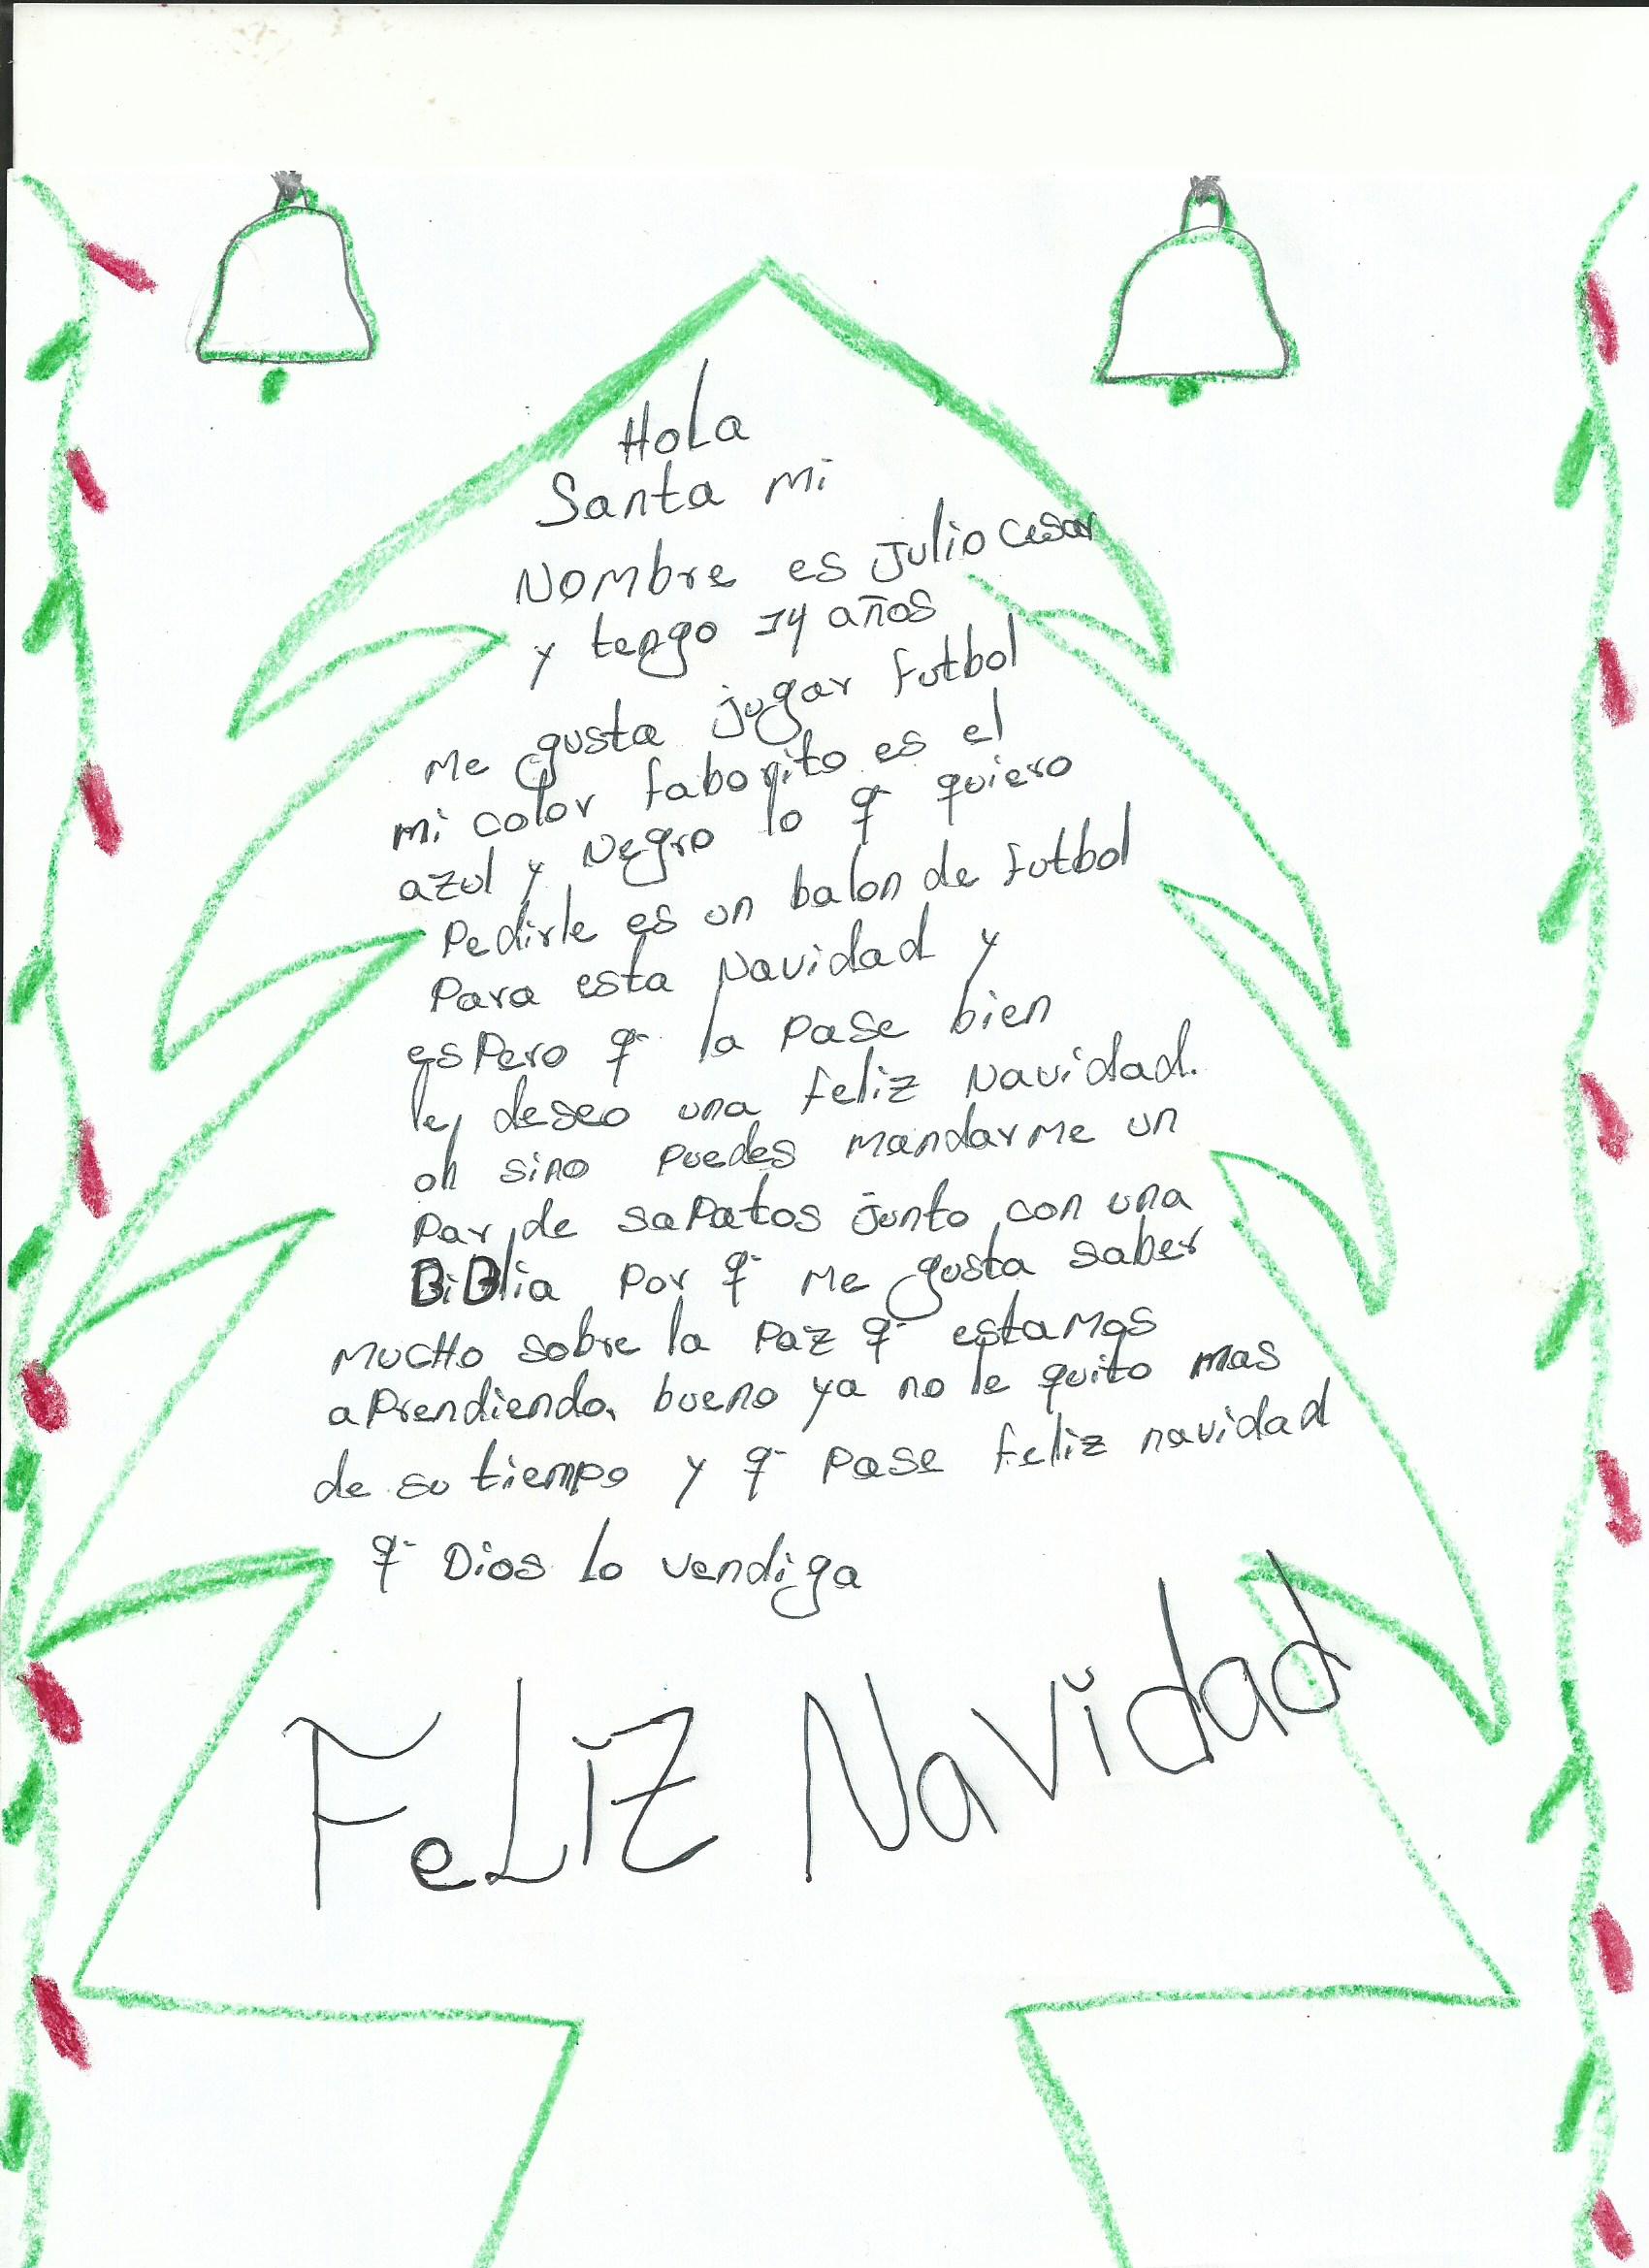 Hola
Santa mi
Nombre es Julio Cesar
y tengo 14 años
Me gusta jugar futbol
mi color faborito es el
azul y Negro lo q- quiero
Pedirle es un balon de futbol
Para esta Navidad y
esPero q- la Pase bien
le deseo una feliz Navidad.
oh sino Puedes mandarme un
Par de saPatos junto con una
BiBlia Por q- Me gusta saber
MucHo sobre la Paz q- estamos
aPrendiendo. bueno ya no le quito mas
de su tiempo y q- Pase feliz navidad
q- Dios lo vendiga
FeLiZ Navidad